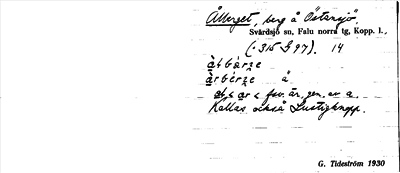 Ålberget, berg å Östansjö,
Svärdsjö sn, Falu norra tg, Kopp. l.,
(·315 G 97). 14
åtbärze
årbérze å
Kallas också Lustigknopp.
G. Tideström 1930